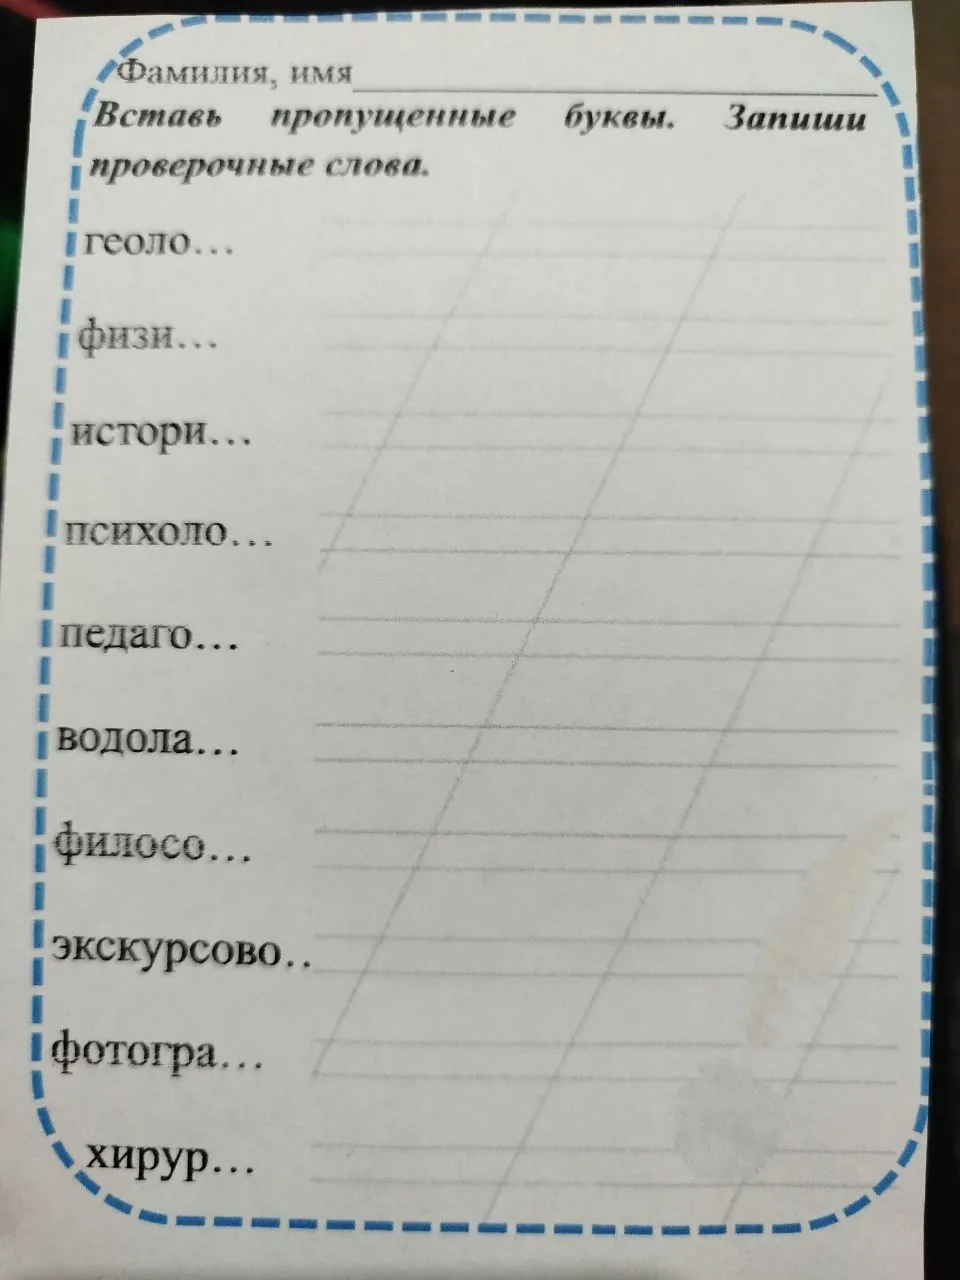 Фамилия, имя
Вставь пропущенные буквы. Запиши
проверочные слова.
геоло...
физи...
истори...
психоло...
педаго...
водола...
филосо...
экскурсово..
фотогра...
хирур...